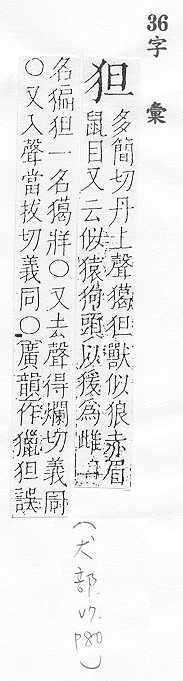 36字彙
狚 多簡切丹上聲獦狚獸似狼赤眉
鼠目又云似猿狗頭以猨為雌一
名猵狚一名獦牂〇又去聲得爛切義同
〇又入聲當拔切義同〇廣韻作獵狚誤
(犬部. V7. P80)